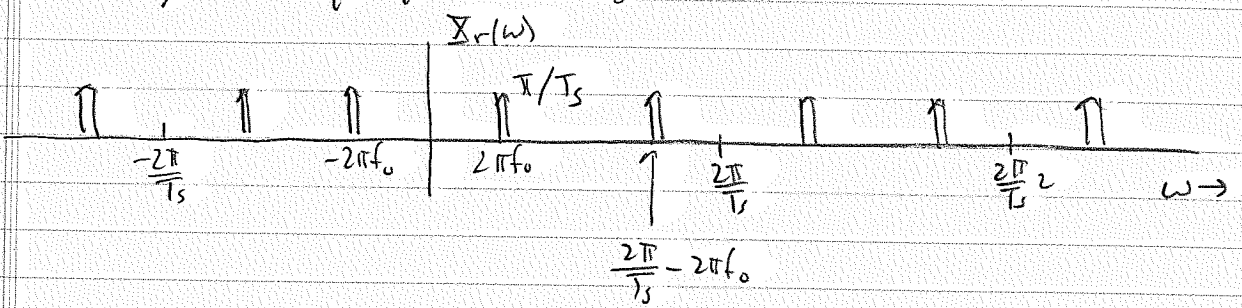 X_r(ω)
π/T_s
-2π/T_s
-2πf₀
2πf₀
2π/T_s
2π/T_s 2
ω →
2π/T_s - 2πf₀